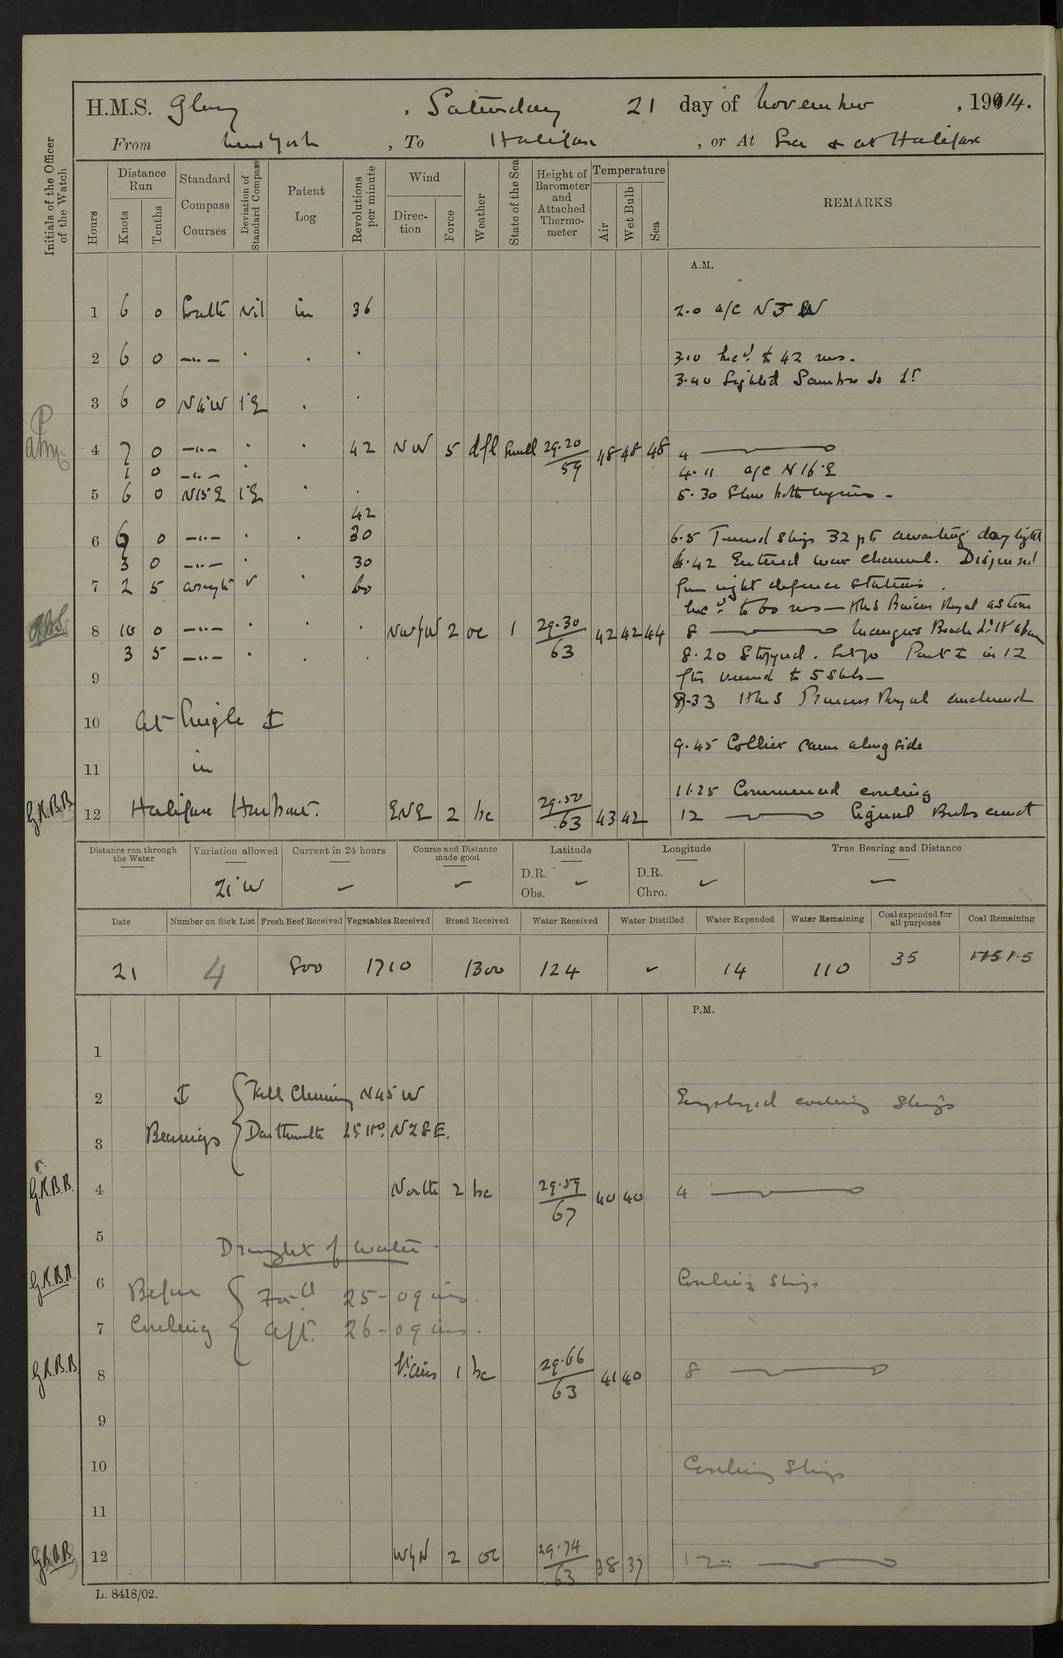 H.M.S. Glory , Saturday 21 day of November , 1914.
From New York , To Halifax , or At Sea & at Halifax
Initials of the Officer of the Watch
Hours
Distance Run
Knots
Tenths
Standard Compass Courses
Deviation of Standard Compass
Patent Log
Revolutions per minute
Wind
Direction
Force
Weather
State of the Sea
Height of Barometer and Attached Thermometer
Temperature
Air
Wet Bulb
Sea
REMARKS
A.M.
1 6 0 South Nil in 36 2.0 a/c N 3 W
2 6 0 —"— 3.10 Incd to 42 revs.
3.40 Sighted Sambro Is Lt
3 6 0 N 4 W 1°E
4 7 0 —"— 42 NW 5 Swell 29.20 59 48 48 48 4
1 0 —"— 4.11 a/c N 16°E
5 6 0 N15E 1°E 5.30 Slow both engines -
42
6 0 —"— 30 6.5 Turned Ships 32 pts awaiting daylight
3 0 —"— 30 6.42 Entered war channel. Dispersed
7 2 5 60 from night defence stations.
Incd to 60 revs — HMS Princess Royal astern
8 10 0 —"— NW by W 2 oc 1 29.30 63 42 42 44 8
3 5 —"— 8.20 Stopped. Let go Port I in 12
9 fms veered to 5 Shls —
8.33 HMS Princess Royal anchored
10 At Single I
9.45 Collier came alongside
11 in
11.25 Commenced coaling
G.R.B.B. 12 Halifax Harbour. ENE 2 bc 29.50 63 43 42 12
Distance run through the Water
Variation allowed
Current in 24 hours
Course and Distance made good
Latitude
Longitude
True Bearing and Distance
21°W
D.R.
Obs.
D.R.
Chro.
Date
Number on Sick List
Fresh Beef Received
Vegetables Received
Bread Received
Water Received
Water Distilled
Water Expended
Water Remaining
Coal expended for all purposes
Coal Remaining
21 4 800 1710 1300 124 14 110 35
P.M.
1
2 I Tall Chimney N45W Employed coaling Ships
3 Bearings Dartmouth N28E.
G.R.B.B. 4 North 2 bc 29.59 67 40 40 4
5
Draught of Water
G.R.B.B. 6 Before Ford 25-09 ins Coaling Ships
7 Coaling Aft. 26-09 ins.
G.R.B.B. 8 1 bc 29.66 63 41 40 8
9
10 Coaling Ships
11
G.R.B.B. 12 W by N 2 oc 29.74 63 38 37 12
L. 8418/02.